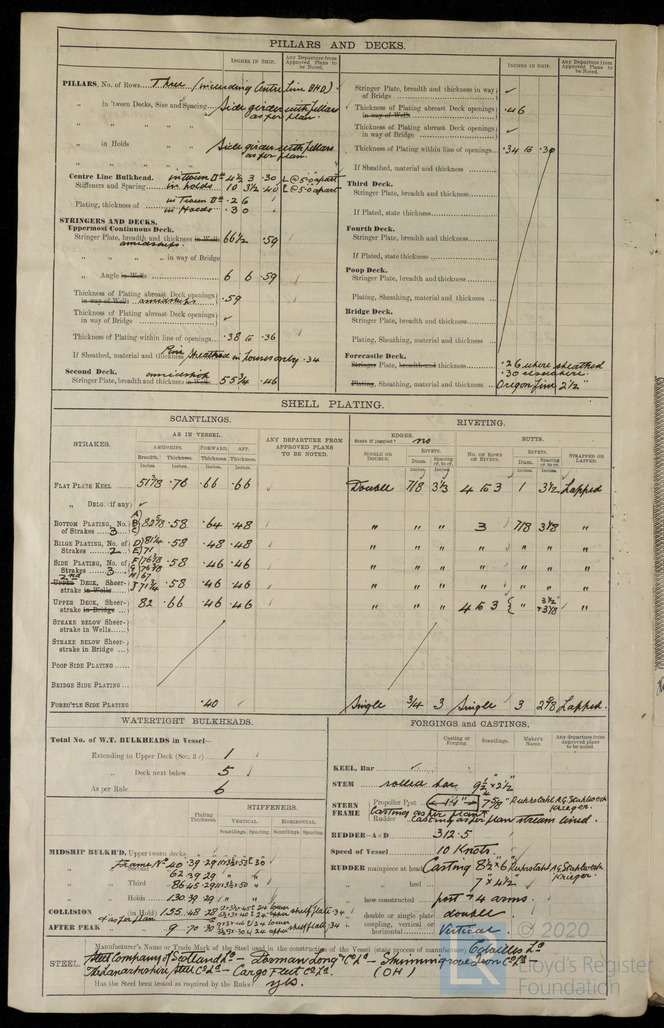 PILLARS AND DECKS.
INCHES IN SHIP.
Any Departure from Approved Plans to be Noted.
PILLARS, No. of Rows Three (including Centre line BHD)
„ in 'tween Decks, Size and Spacing Side girder with pillars
as per plan.
„ in Holds Side girder with pillars
as per plan.
Centre Line Bulkhead. in tween Dk 4½ 3 .30 L @ 5'0" apart
Stiffeners and Spacing in holds 10 3½ .40 L @ 5'0" apart
Plating, thickness of in Tween Dk .26
in Holds .30
STRINGERS AND DECKS.
Uppermost Continuous Deck.
Stringer Plate, breadth and thickness in Wells 66½ .59
amidships.
„ „ „ „ in way of Bridge
„ Angle in Wells 6 6 .59
Thickness of Plating abreast Deck openings
in way of Wells amidships .59
Thickness of Plating abreast Deck openings
in way of Bridge
Thickness of Plating within line of openings .38 to .36
If Sheathed, material and thickness Pine Sheathed in houses only .34
Second Deck. amidships
Stringer Plate, breadth and thickness in Wells 55¾ .46
INCHES IN SHIP.
Any Departure from Approved Plans to be Noted.
Stringer Plate, breadth and thickness in way
of Bridge
Thickness of Plating abreast Deck openings
in way of Wells .46
Thickness of Plating abreast Deck openings
in way of Bridge
Thickness of Plating within line of openings .34 to .30
If Sheathed, material and thickness
Third Deck.
Stringer Plate, breadth and thickness
If Plated, state thickness
Fourth Deck.
Stringer Plate, breadth and thickness
If Plated, state thickness
Poop Deck.
Stringer Plate, breadth and thickness
Plating, Sheathing, material and thickness
Bridge Deck.
Stringer Plate, breadth and thickness
Plating, Sheathing, material and thickness
Forecastle Deck.
Stringer Plate, breadth and thickness .26 where sheathed
.30 elsewhere
Plating, Sheathing, material and thickness Oregon Pine 2½"
SHELL PLATING.
SCANTLINGS.
RIVETING.
STRAKES.
AS IN VESSEL.
AMIDSHIPS. FORWARD. AFT.
Breadth. Thickness. Thickness. Thickness.
Inches. Inches. Inches. Inches.
ANY DEPARTURE FROM APPROVED PLANS TO BE NOTED.
EDGES.
State if joggled? no
SINGLE OR DOUBLE.
RIVETS.
Diam. Spacing cr. to cr.
BUTTS.
No. OF ROWS OF RIVETS.
RIVETS.
Diam. Spacing cr. to cr.
STRAPPED OR LAPPED.
FLAT PLATE KEEL 51⅞ .76 .66 .66 Double 7/8 3½ 4 to 3 1 3½ Lapped
„ DBLG. (if any)
BOTTOM PLATING, No. of Strakes 3 A) B) C) 82⅝ .58 .64 .48 „ „ „ 3 7/8 3⅛ „
BILGE PLATING, No. of Strakes 2 D) 81¼ E) 71 .58 .48 .48 „ „ „ „ „ „ „
SIDE PLATING, No. of Strakes 3 .58 .46 .46 „ „ „ „ „ „ „
2nd DECK, Sheerstrake in Wells J 71¾ .58 .46 .46 „ „ „ „ „ „ „
UPPER DECK, Sheerstrake in Bridge 82 .66 .46 .46 „ „ „ 4 to 3 „ 3½ + 3⅛ „
STRAKE BELOW Sheerstrake in Wells
STRAKE BELOW Sheerstrake in Bridge
POOP SIDE PLATING
BRIDGE SIDE PLATING
FOREC'TLE SIDE PLATING .40 Single 3/4 3 Single 3 2⅝ Lapped.
WATERTIGHT BULKHEADS.
Total No. of W.T. BULKHEADS in Vessel—
Extending to Upper Deck (Sec. 3 c) 1
„ Deck next below 5
As per Rule 6
Plating Thickness.
STIFFENERS.
VERTICAL. HORIZONTAL.
Scantlings. Spacing. Scantlings. Spacing.
MIDSHIP BULKH'D, Upper 'tween decks
Frame No 40 .39 .29
62 .39 .29 „ „
„ Third 86 .45 .29
„ Holds 130 .39 .29 „ „
COLLISION „ (in Hold) 155 .48 .28 lower shelf plate .34
+ as per plan
AFTER PEAK „ 9 .70 .30 shelf plate .34
FORGINGS and CASTINGS.
Casting or Forging. Scantlings. Maker's Name. Any departure from approved plans to be noted.
KEEL, Bar
STEM rolled bar 9½ × 2½
STERN FRAME Propeller Post 7⅝ Ruhrstahl A.G. Stahlwerk
Casting as per plan Krieger.
Rudder „ Casting as per plan stream lined.
RUDDER—A × D 312.5
Speed of Vessel 10 Knots.
RUDDER mainpiece at head Casting 8½ × 6" Ruhrstahl A.G. Stahlwerk
„ „ heel 7" × 4½" Krieger.
„ how constructed post + 4 arms.
„ double or single plate double
„ coupling, vertical or horizontal Vertical
STEEL. Manufacturer's Name or Trade Mark of the Steel used in the construction of the Vessel (state process of manufacture) Colvilles Ld
Steel Company of Scotland Ld — Dorman Long & Co Ld — Skinningrove Iron Co Ld —
Lanarkshire Steel Co Ld — Cargo Fleet Co Ld. (OH)
Has the Steel been tested as required by the Rules? yes.
© 2020
LR
Lloyd's Register
Foundation